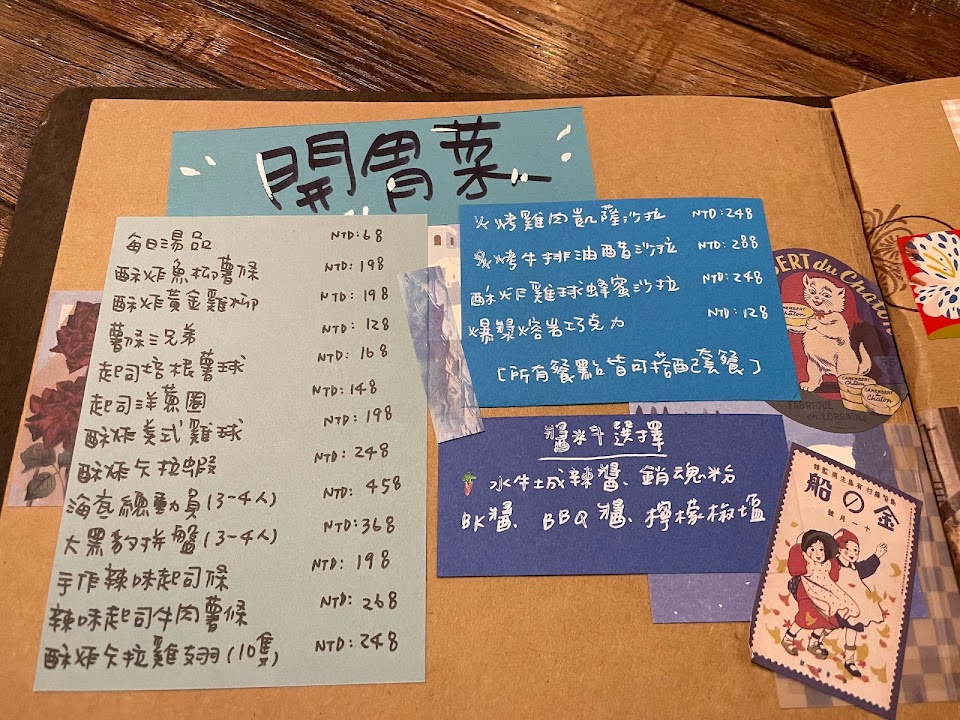 開胃菜
每日湯品 NTD:68
酥炸魚柳薯條 NTD:198
酥炸黃金雞柳 NTD:198
薯條三兄弟 NTD:128
起司培根薯球 NTD:168
起司洋蔥圈 NTD:148
酥炸美式雞球 NTD:198
酥炸卡拉蝦 NTD:248
海苔總動員(3-4人) NTD:458
大黑豹拼盤(3-4人) NTD:368
手作辣味起司條 NTD:198
辣味起司牛肉薯條 NTD:268
酥炸卡拉雞翅(10隻) NTD:248
火烤雞肉凱薩沙拉 NTD:248
火烤牛排油醋沙拉 NTD:288
酥炸雞球蜂蜜沙拉 NTD:248
爆漿熔岩巧克力 NTD:128
[所有餐點皆可搭配套餐]
醬料選擇
水牛城辣醬、銷魂粉
BK醬、BBQ醬、檸檬椒塩
BERT du
CAMEMBERT
Chalon
FABRIQUE
金の船
十一月號